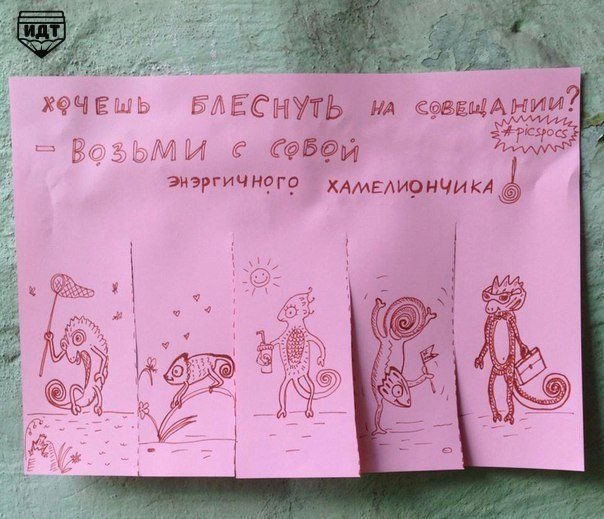 ИДТ
ХОЧЕШЬ БЛЕСНУТЬ НА СОВЕЩАНИИ?
#picspocs
– ВОЗЬМИ С СОБОЙ
ЭНЭРГИЧНОГО ХАМЕЛИОНЧИКА!